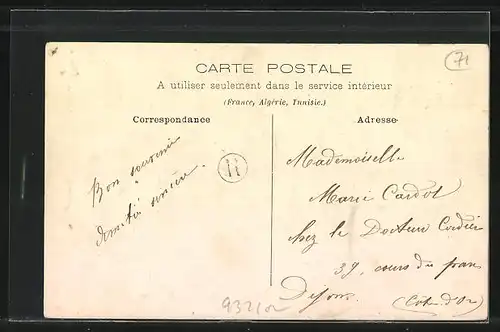 71
CARTE POSTALE
A utiliser seulement dans le service intérieur
(France, Algérie, Tunisie.)
Correspondance
Adresse
Bon souvenir
d'amitié sincère.
Mademoiselle
Marie Cardot
chez le Docteur Cordier
39, cours du parc
Dijon.
(Côte-d'Or)